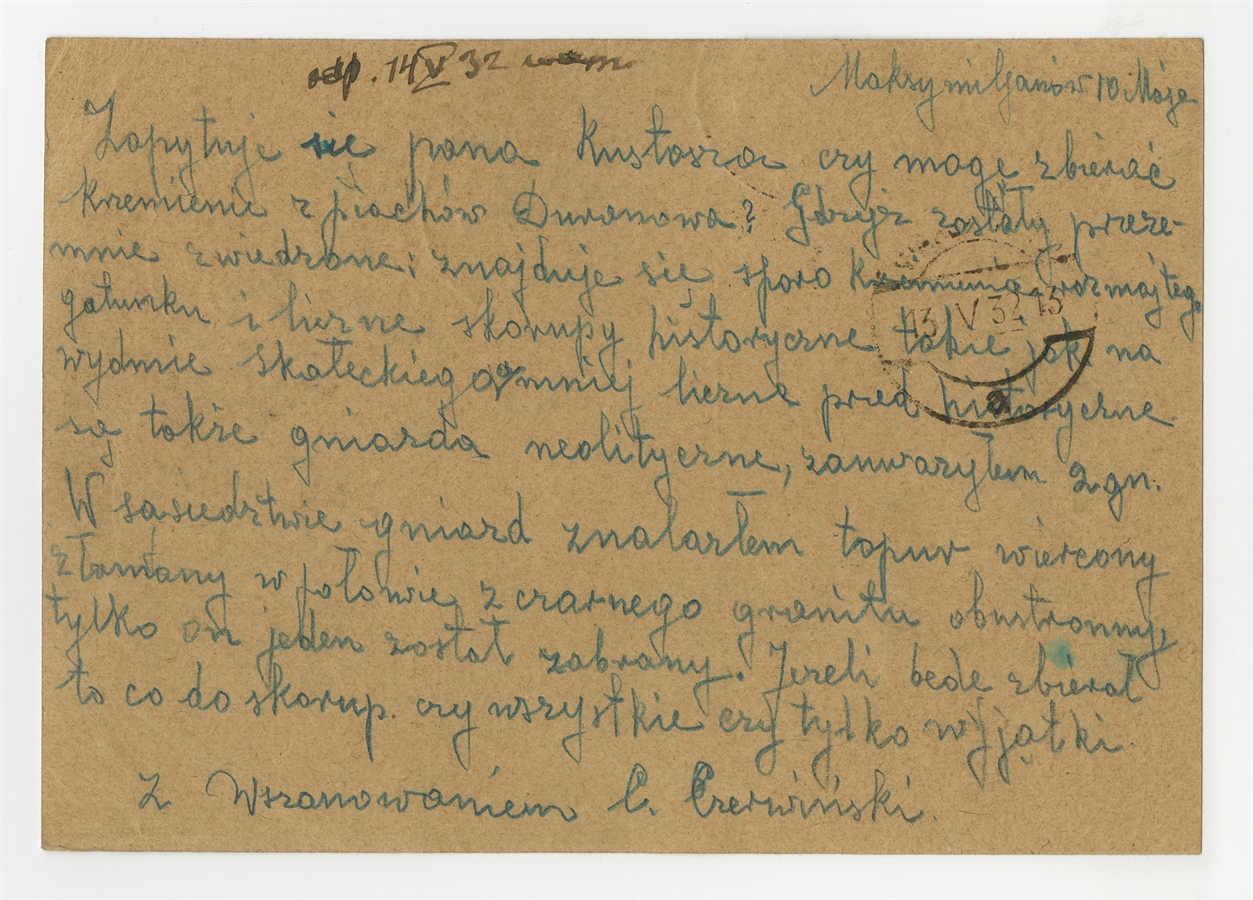 odp. 14 V 32
Maksymiljanów 10 Maja
Zapytuje się pana Kustosza czy mogę zbierać
krzemienie z piachów Duranowa? Gdzyż zostały przeze-
mnie zwiedzone; znajduje się sporo krzemienia rozmajtego
gatunku i liczne skorupy historyczne takie jak na
wydmie Skałeckiego a mniej liczne pred historyczne
są także gniazda neolityczne, zauwarzyłem 2 gn.
W sąsiedztwie gniazd znalazłem topur wiercony
złomany w połowie, z czarnego granitu obustronny,
tylko on jeden został zabrany. Jezeli bede zbierał
to co do skorup. czy wszystkie czy tylko wyjątki.
Z Wszanowaniem C. Czerwiński.
13 V 32 13
a